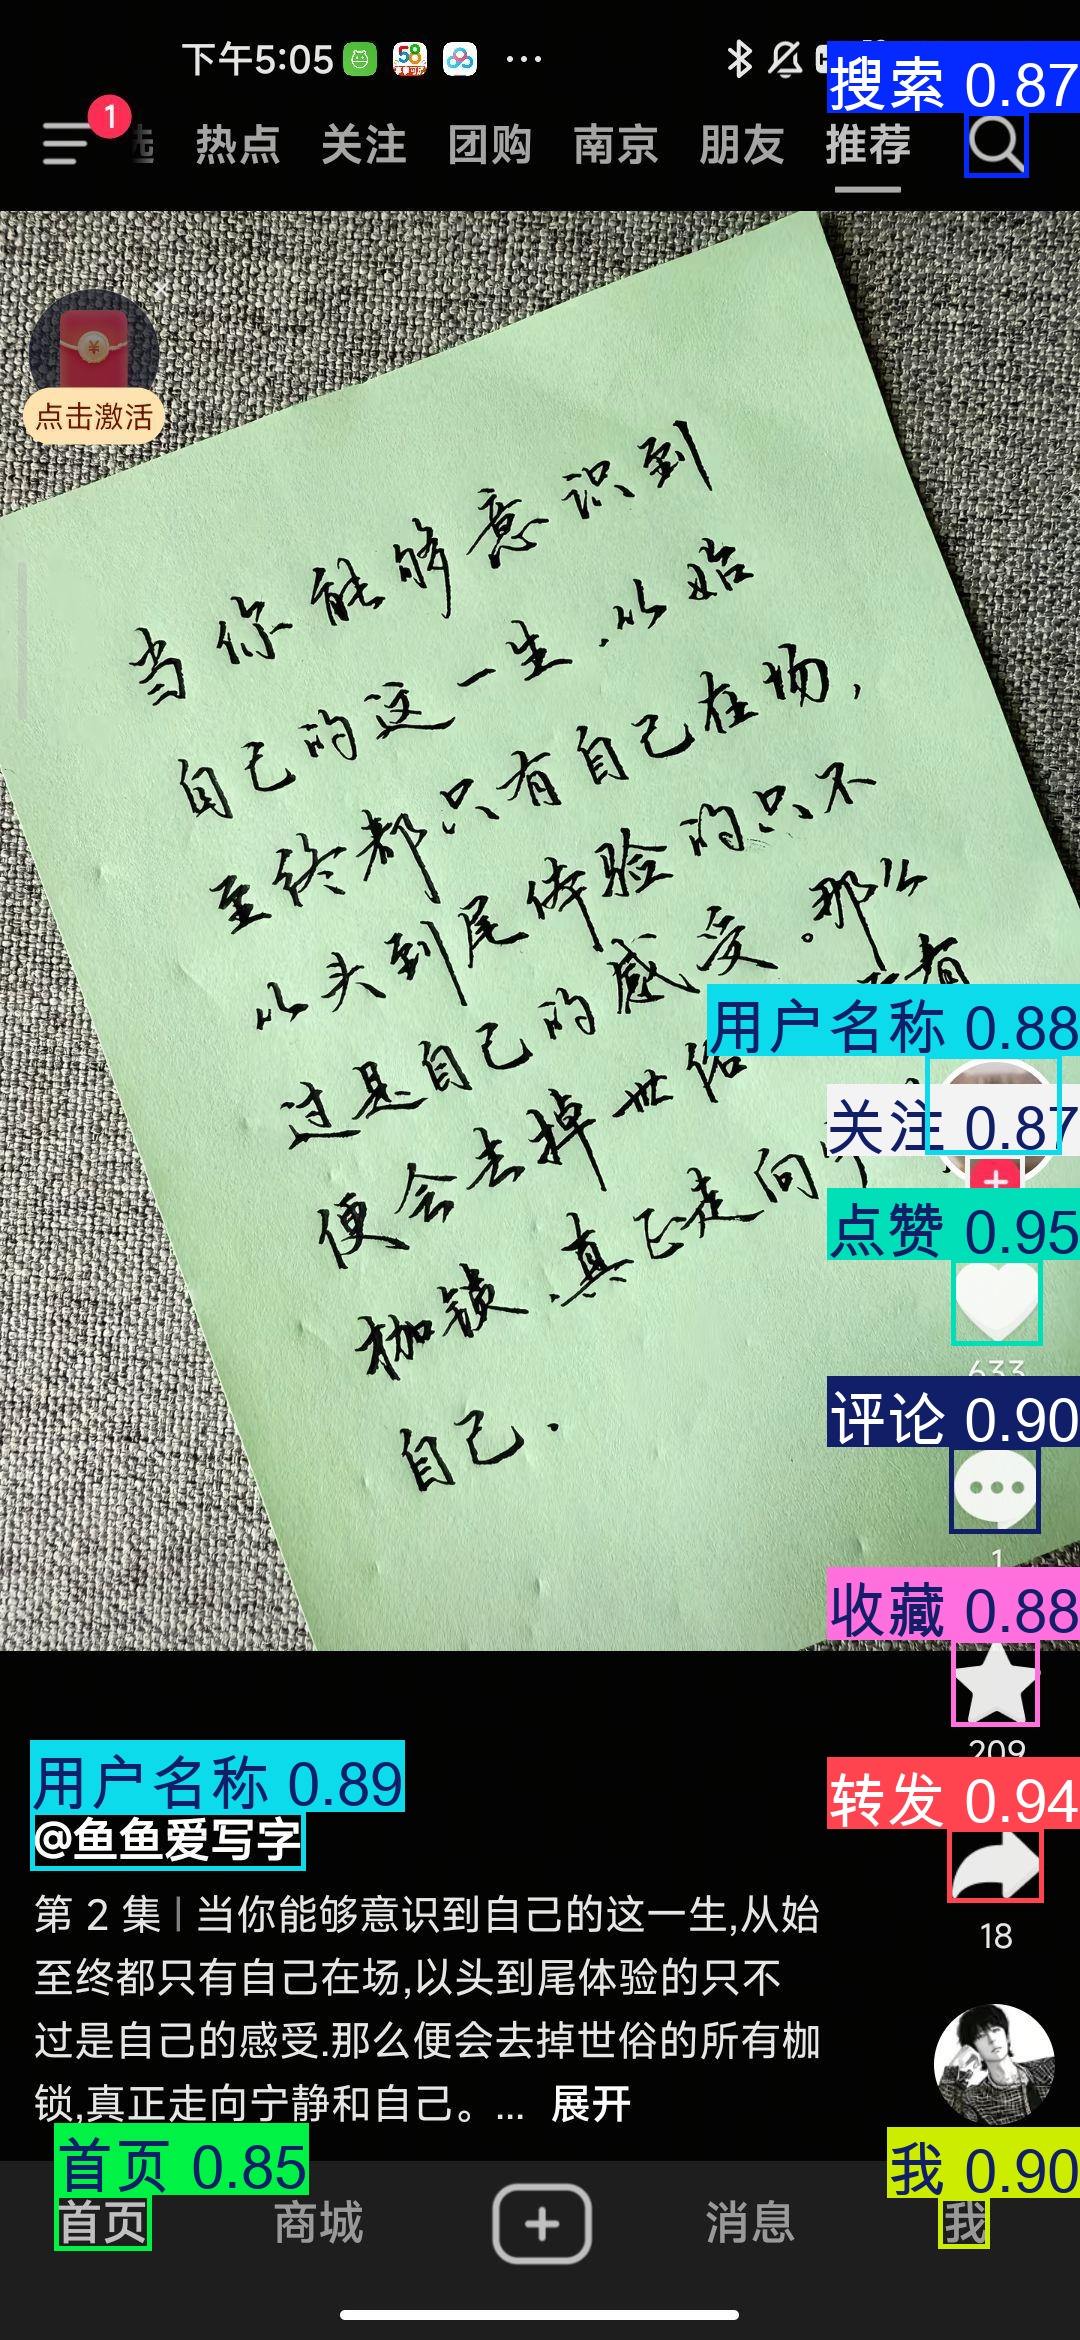 下午5:05
搜索 0.87
1
热点 关注 团购 南京 朋友 推荐
点击激活
当你能够意识到
自己的这一生.从始
至终都只有自己在场,
以头到尾体验的只不
过是自己的感受.那么
便会去掉世俗
枷锁.真正走向
自己.
用户名称 0.88
关注 0.87
点赞 0.95
633
评论 0.90
1
收藏 0.88
209
转发 0.94
18
用户名称 0.89
@鱼鱼爱写字
第 2 集 | 当你能够意识到自己的这一生,从始
至终都只有自己在场,以头到尾体验的只不
过是自己的感受.那么便会去掉世俗的所有枷
锁,真正走向宁静和自己。... 展开
首页 0.85
我 0.90
首页 商城 消息 我